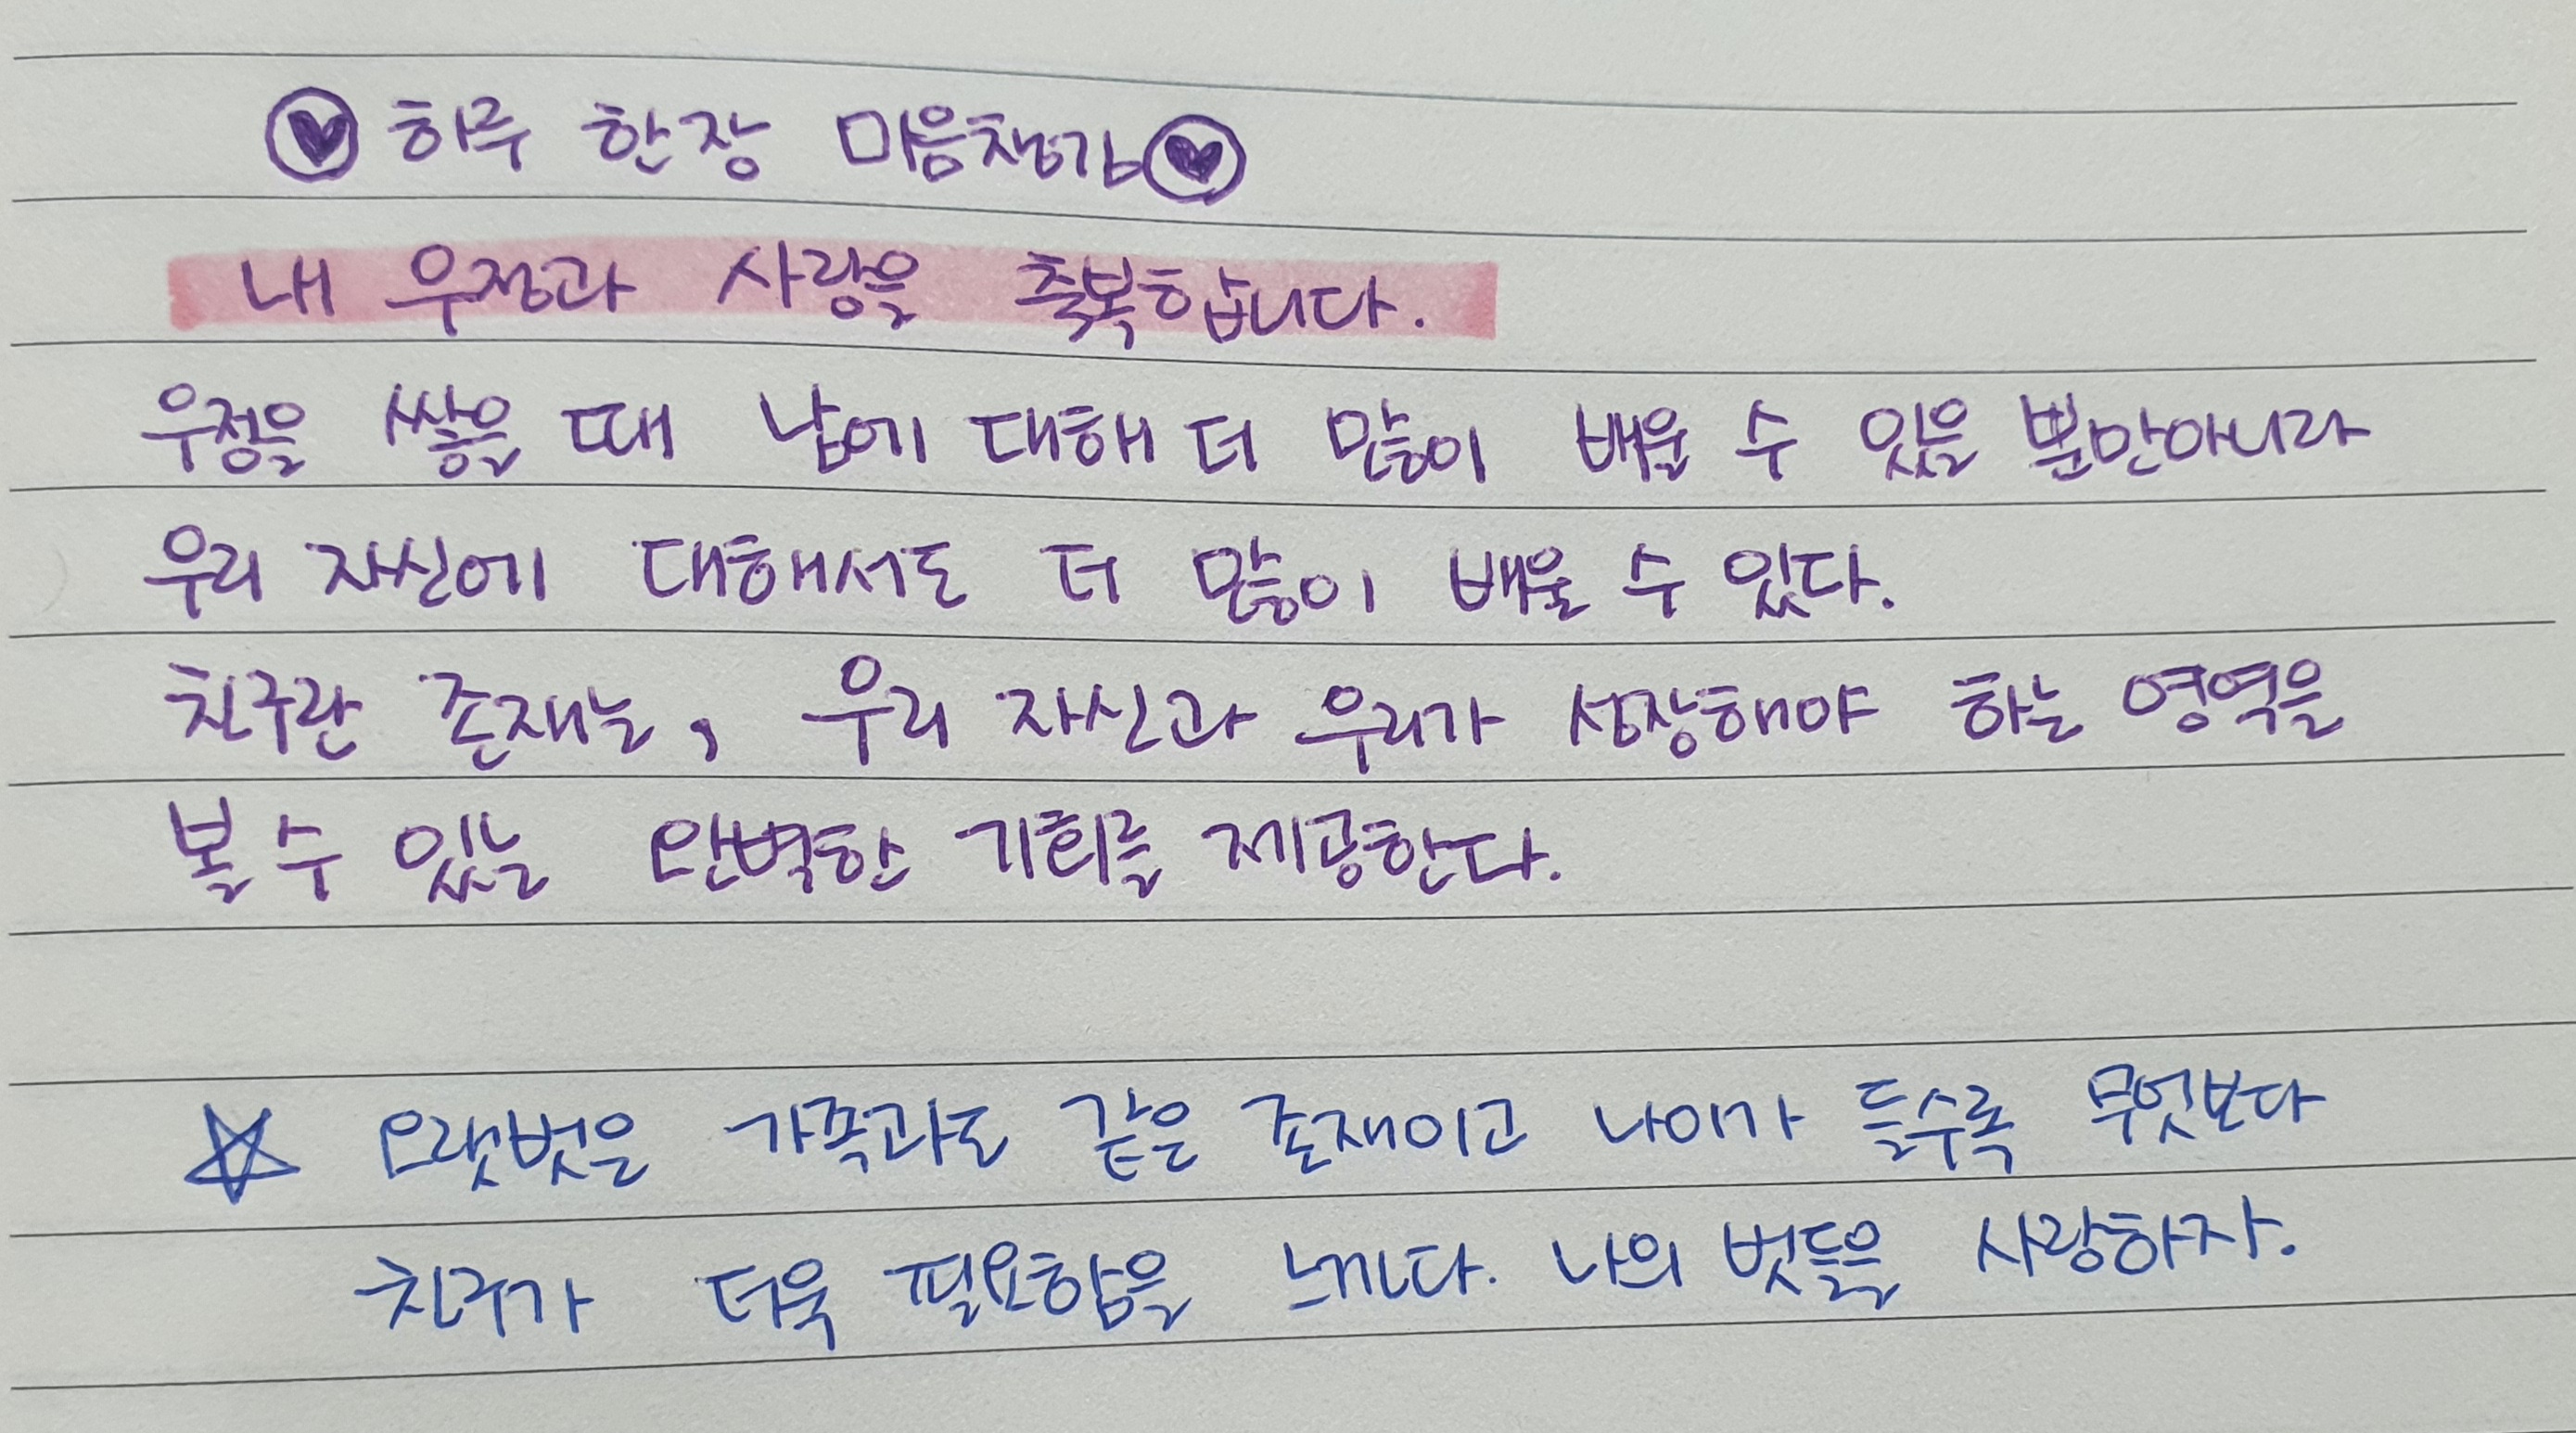 하루 한장 마음챙김
내 우정과 사랑을 축복합니다.
우정을 쌓을 때 남에 대해 더 많이 배울 수 있을 뿐만아니라
우리 자신에 대해서도 더 많이 배울 수 있다.
친구란 존재는, 우리 자신과 우리가 성장해야 하는 영역을
볼 수 있는 완벽한 기회를 제공한다.
☆ 오랫벗은 가족과도 같은 존재이고 나이가 들수록 무엇보다
친구가 더욱 필요함을 느낀다. 나의 벗들을 사랑하자.